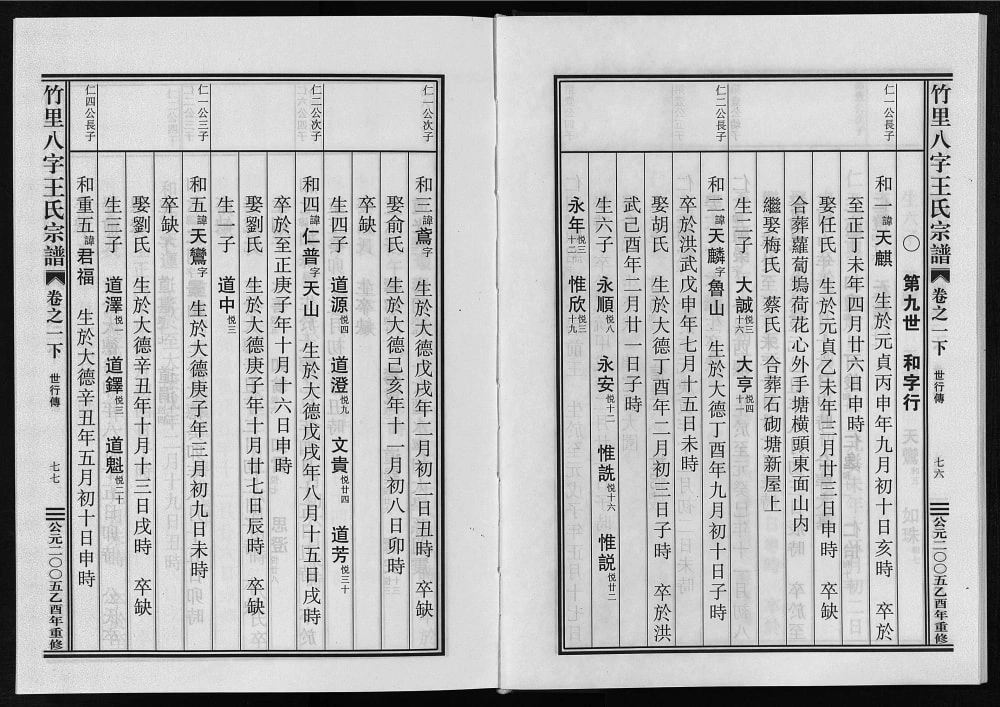 竹里八字王氏宗譜 卷之一下 世行傳 七六 公元二〇〇五乙酉年重修
〇 第九世 和字行
仁一公長子
和一諱天麒 生於元貞丙申年九月初十日亥時 卒於
至正丁未年四月廿六日申時
娶任氏 生於元貞乙未年三月廿三日申時 卒缺
合葬蘿蔔塢荷花心外手塘橫頭東面山内
繼娶梅氏 蔡氏 合葬石砌塘新屋上
生二子 大誠悦三十六 大亨悦四十一
仁二公長子
和二諱天麟字魯山 生於大德丁酉年九月初十日子時
卒於洪武戊申年七月十五日未時
娶胡氏 生於大德丁酉年二月初三日子時 卒於洪
武己酉年二月廿一日子時
生六子 永順悦八 永安悦十二 惟詵悦十六 惟説悦廿二
永年悦三十二 惟欣悦十九
仁一公次子
和三諱鳶字 生於大德戊戌年二月初二日丑時 卒缺
娶俞氏 生於大德己亥年十一月初八日卯時
卒缺
生四子 道源悦四 道澄悦九 文貴悦廿四 道芳悦三十
仁二公次子
和四諱仁普字天山 生於大德戊戌年八月十五日戌時
卒於至正庚子年十月十六日申時
娶劉氏 生於大德庚子年十月廿七日辰時 卒缺
生一子 道中悦三
仁一公三子
和五諱天鸞字 生於大德庚子年三月初九日未時
卒缺
娶劉氏 生於大德辛丑年十月十三日戌時 卒缺
生三子 道澤悦一 道鐸悦三 道魁悦二十
仁四公長子
和重五諱君福 生於大德辛丑年五月初十日申時
竹里八字王氏宗譜 卷之一下 世行傳 七七 公元二〇〇五乙酉年重修